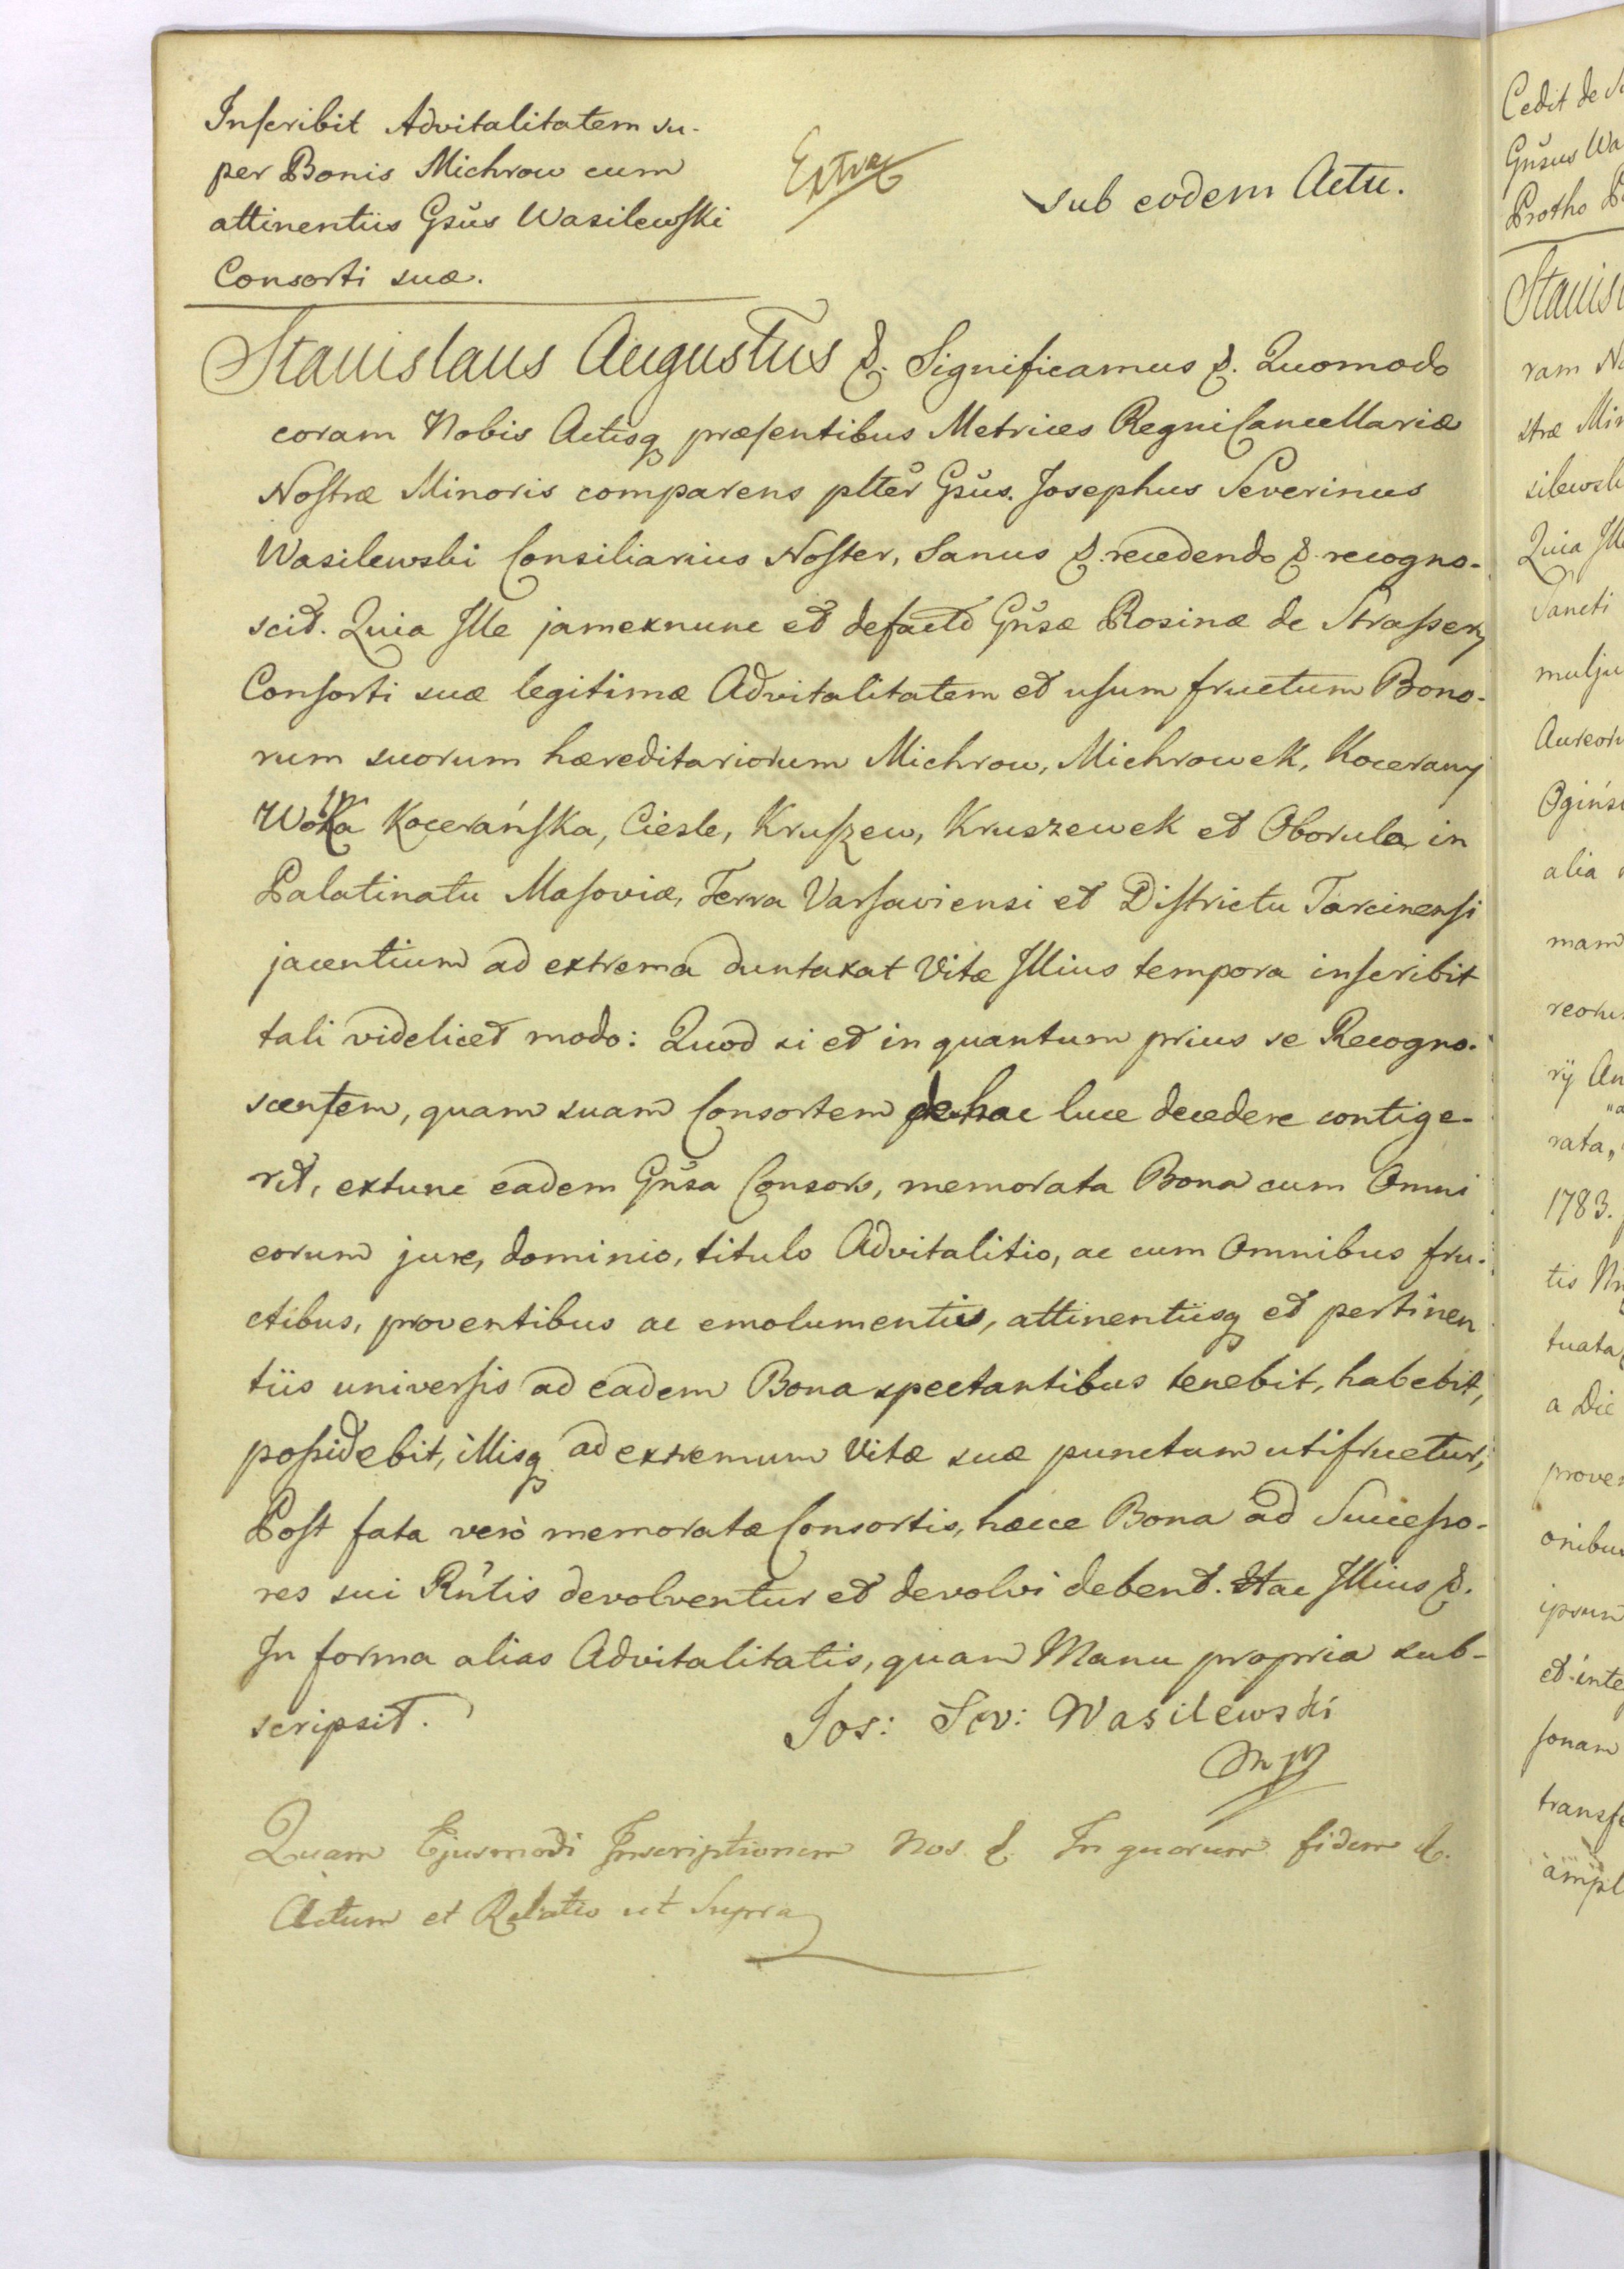 Inscribit Advitalitatem su-
per Bonis Michrow cum
attinentiis Gsus Wasilewski
Consorti suæ.
Extrac
sub eodem Actu.
Stanislaus Augustus &. Significamus &. Quomodo
coram Nobis Actisq præsentibus Metrices Regni Cancellariæ
Nostræ Minoris comparens plter Gsus. Josephus Severinus
Wasilewski Consiliarius Noster, Sanus &. recedendo &. recogno-
scit. Quia Ille jamexnunc et defacto Gnsæ Rosinæ de Strasser,
Consorti suæ legitimæ Advitalitatem et usum fructum Bono-
rum suorum hæreditariorum Michrow, Michrowek, Kocerany
Wolka Koceránska, Ciesle, Kruszew, Kruszewek et Oborula in
Palatinatu Masoviæ, Terra Varsaviensi et Districtu Tarcinensi
jacentium ad extrema duntaxat Vitæ Illius tempora inscribit
tali videlicet modo: Quod si et in quantum prius se Recogno-
scentem, quam suam Consortem de hac luce decedere contige-
rit, extunc eadem Gnsa Consors, memorata Bona cum Omni
eorum jure, dominio, titulo Advitalitio, ac cum Omnibus fru-
ctibus, proventibus ac emolumentis, attinentiisq et pertinen
tiis universis ad eadem Bona spectantibus tenebit, habebit,
possidebit, illisq ad extremum Vitæ suæ punctum utifruetur,
Post fata verò memoratæ Consortis, hæcce Bona ad Successo-
res sui Rntis devolventur et devolvi debent. Hac Illius &.
In forma alias Advitalitatis, quam Manu propria sub-
scripsit.
Jos: Sev: Wasilewski
mp
Quam Ejusmodi Inscriptionem Nos &. In quorum fidem &.
Actum et Relatio ut Supra
Cedit de
Gnsus Wa
Protho
Stanis
ram No
stræ Min
silewsk
Quia Ill
Sancti
mulju
Aureor
Ogińs
alia
mam
reoru
rij An
rata,
1783.
tis
tuata
a Die
prove
onibus
ipsum
et inte
sonam
transfe
ampl